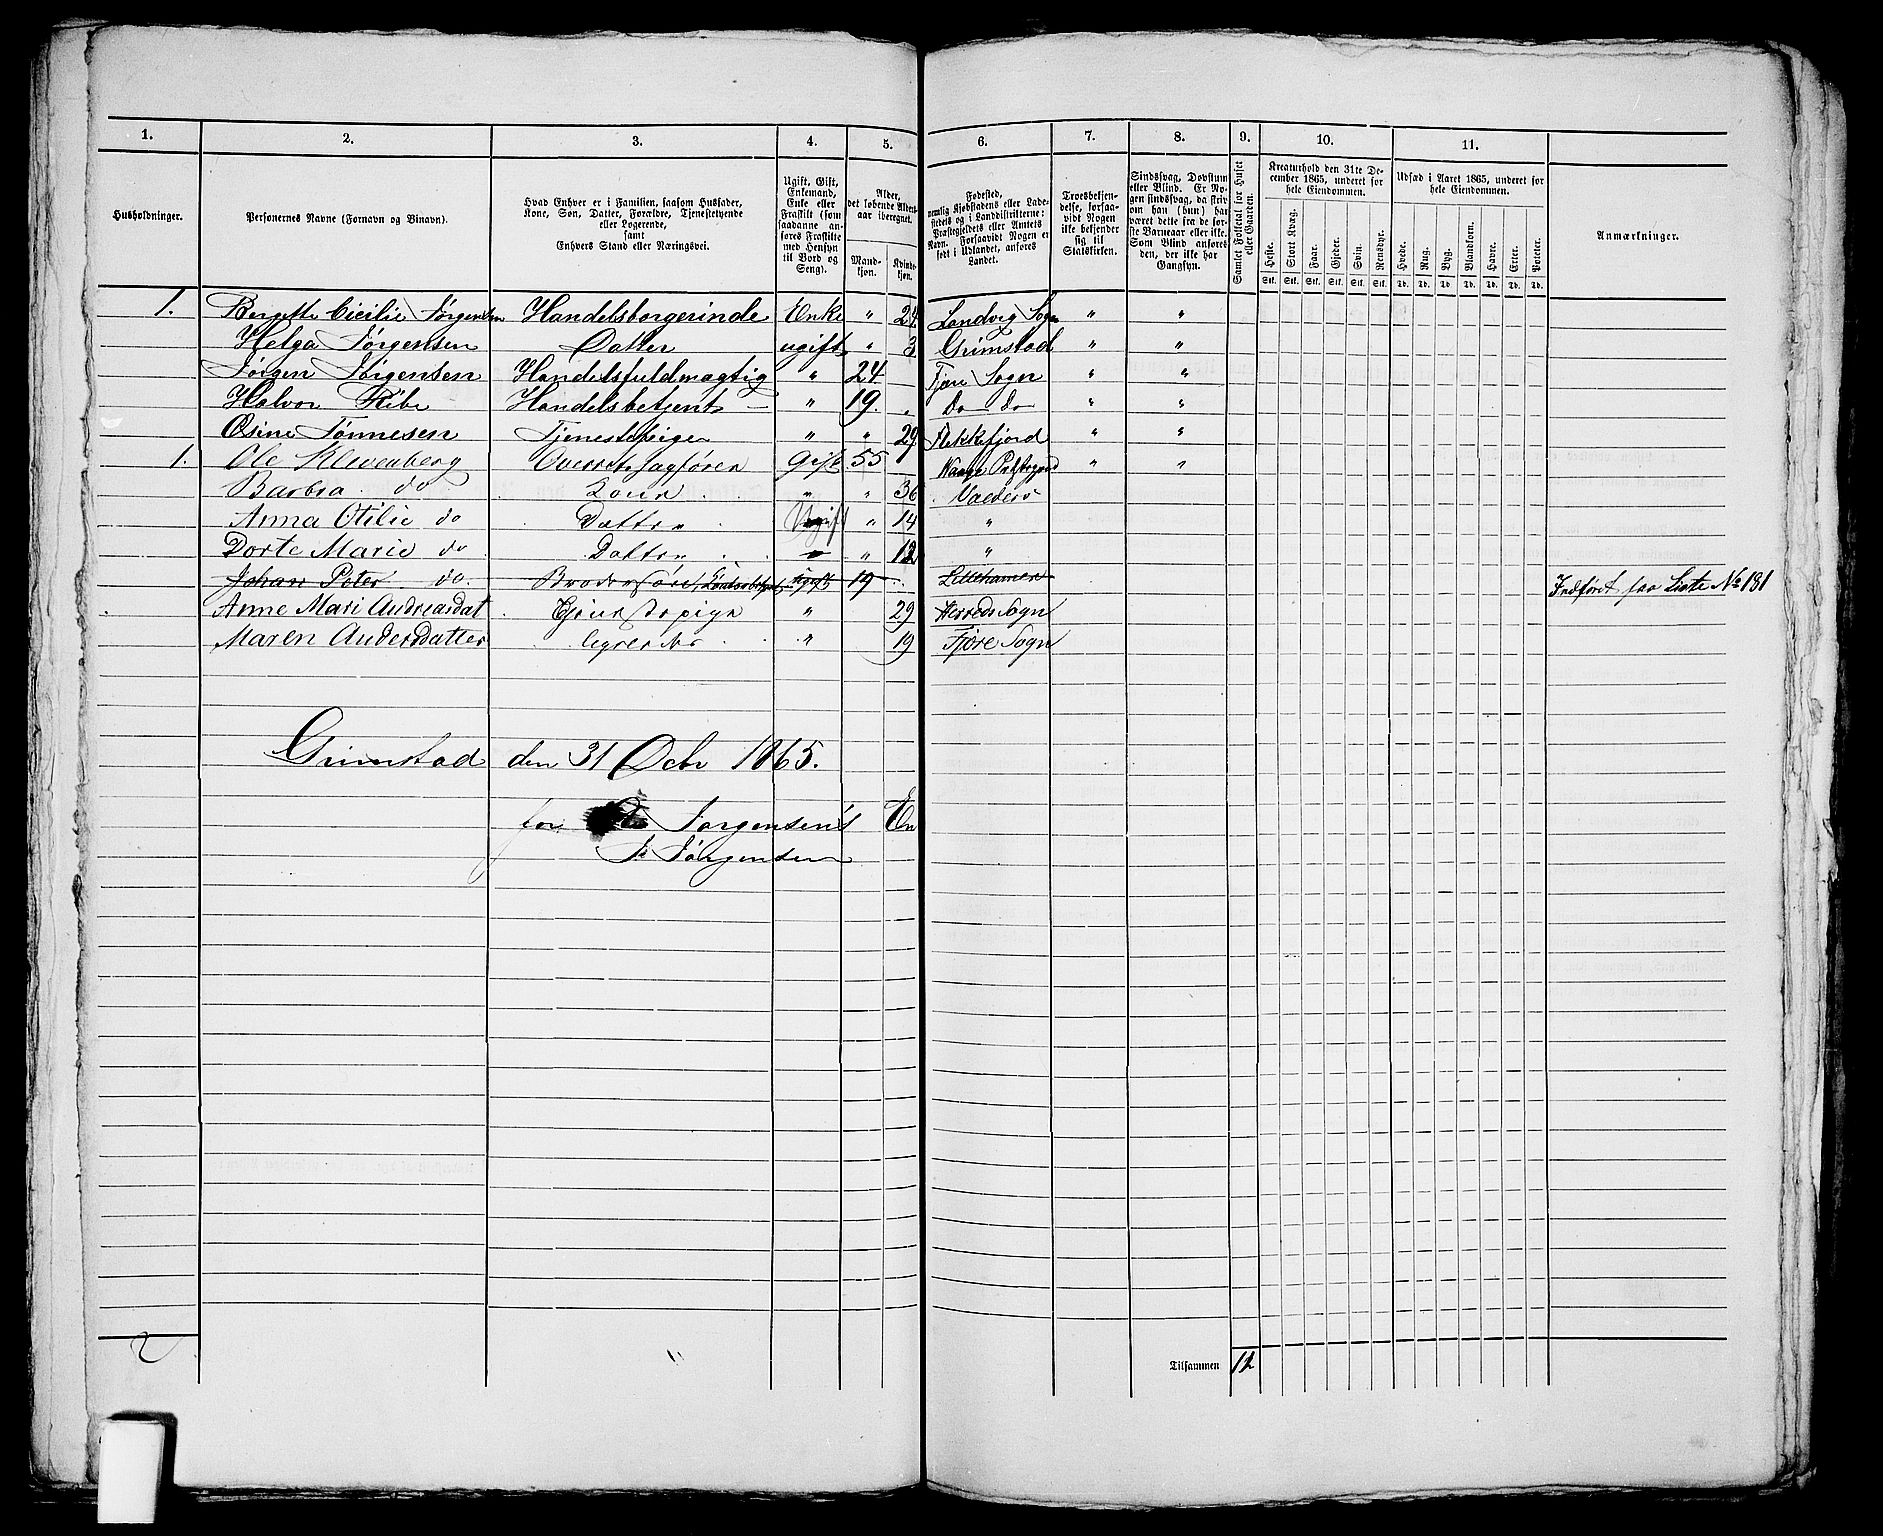 1. 2. 3. 4. 5. 6. 7. 8. 9. 10. 11.
Husholdninger.
Personernes Navne (Fornavn og Tilnavn).
Hvad Enhver er i Familien, saasom Husfader,
Kone, Søn, Datter, Forældre, Tjenestetyende
eller Logerende,
samt
Enhvers Stand eller Næringsvei.
Ugift, Gift,
Enkemand,
Enke eller
Fraskilt (som
saadanne an-
føres Fraskilte
med Hensyn
til Bord og
Seng).
Alder,
det løbende Alders-
aar iberegnet.
Mand-
kjøn.
Kvinde-
kjøn.
Fødested,
nemlig Kjøbstadens eller Lade-
stedets og i Landdistrikterne:
Præstegjeldets eller Amtets
Navn. Forsaavidt Nogen er
født i Udlandet, anføres
Landet.
Troesbekjen-
delse, forsaa-
vidt Nogen
ikke bekjender
sig til
Statskirken.
Sindssvag, Døvstum
eller Blind. Er No-
gen sindssvag, da skriv
om han (hun) har
været dette fra de før-
ste Barneaar eller ikke.
Som Blind anføres
den, der ikke har
Gangsyn.
Samlet Folketal for Huset
eller Gaarden.
Kreaturhold den 31te De-
cember 1865, underet for
hele Eiendommen.
Heste. Stort Kvæg. Faar. Gjeder. Svin. Rensdyr.
Stk. Stk. Stk. Stk. Stk. Stk.
Udsæd i Aaret 1865, underet for
hele Eiendommen.
Hvede. Rug. Byg. Blandkorn. Havre. Erter. Poteter.
Td. Td. Td. Td. Td. Td. Td.
Anmærkninger.
1. Bergette Cicilie Jørgensen Handelsborgerinde Enke " 24 Landvig Sogn " "
Helga Jørgensen Datter ugift " 3 Grimstad " "
Jørgen Jørgensen Handelsfuldmægtig " 24 Fjære Sogn " "
Halvor Ribe Handelsbetjent — " 19. " Do Do " "
Osine Tønnesen Tjenestepige " " 29 Flekkefjord " "
1. Ole Klevenberg Overretssagfører Gift 55 Præstegjeld " "
Barbra do Kone " " 36
Anna Otilie do Datter Ugift " 14 "
Dorte Marie do Datter " " 12 "
Johan Peter do. Brodersøn, ugift 19 Lillehamer Indført paa Liste No 181
Anne Mari Andreasdat Tjenestepige " 29 Herreds Sogn
Maren Andersdatter " 19 Fjære Sogn
Grimstad den 31 Decbr 1865.
for Jørgensen's En
J. Jørgensen
Tilsammen 12